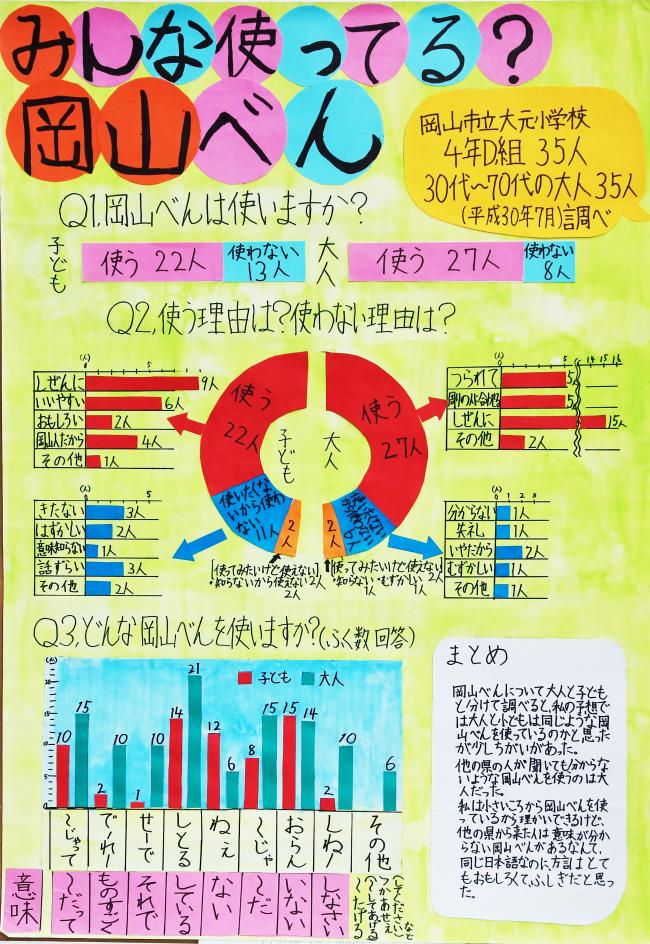 みんな使ってる?
岡山べん
岡山市立大元小学校
4年D組 35人
30代〜70代の大人35人
(平成30年7月)調べ
Q1,岡山べんは使いますか?
子ども
使う 22人
使わない
13人
大人
使う 27人
使わない
8人
Q2,使う理由は?使わない理由は?
(人) 0 5
しぜんに 9人
いいやすい 6人
おもしろい 2人
岡山人だから 4人
その他 1人
(人) 0 5
きたない 3人
はずかしい 2人
意味知らない 1人
話ずらい 3人
その他 2人
使う
22人
子ども
使いたくな
いから使わ
ない 11人
2人
大人
使う
27人
2人
(人) 0 5 14 15 16
つられて 5人
5人
しぜんに 15人
その他 2人
(人) 0 1 2 3
分からない 1人
失礼 1人
いやだから 2人
むずかしい 1人
その他 1人
[使ってみたいけど使えない]
・知らないから使えない2人
2人
[使ってみたいけど使えない]
2人
・知らない ・むずかしい
1人 1人
Q3,どんな岡山べんを使いますか?(ふく数回答)
(人)
子ども 大人
20
15
10
5
0
10 15
2 10
1 10
14 21
12 6
8 15
15 14
2 10
6
〜じゃって
でーれー
せーで
しとる
ねぇ
〜じゃ
おらん
しねー
その他
意味
〜だって
ものすごく
それで
している
ない
〜だ
いない
しなさい
まとめ
岡山べんについて大人と子ども
と分けて調べると、私の予想で
は大人と小どもは同じような岡
山べんを使っているのかと思った
が少しちがいがあった。
他の県の人が聞いても分からな
いような岡山べんを使うのは大
人だった。
私は小さいころから岡山べんを使
っているから理かいできるけど、
他の県から来た人は意味が分か
らない岡山べんがあるなんて、
同じ日本語なのに、方言はとて
もおもしろくて、ふしぎだと思っ
た。